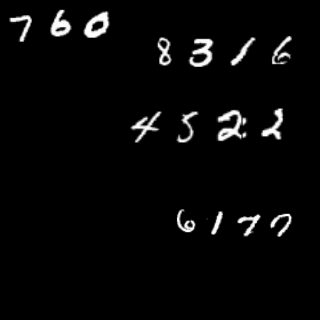 760
8316
4522
6177